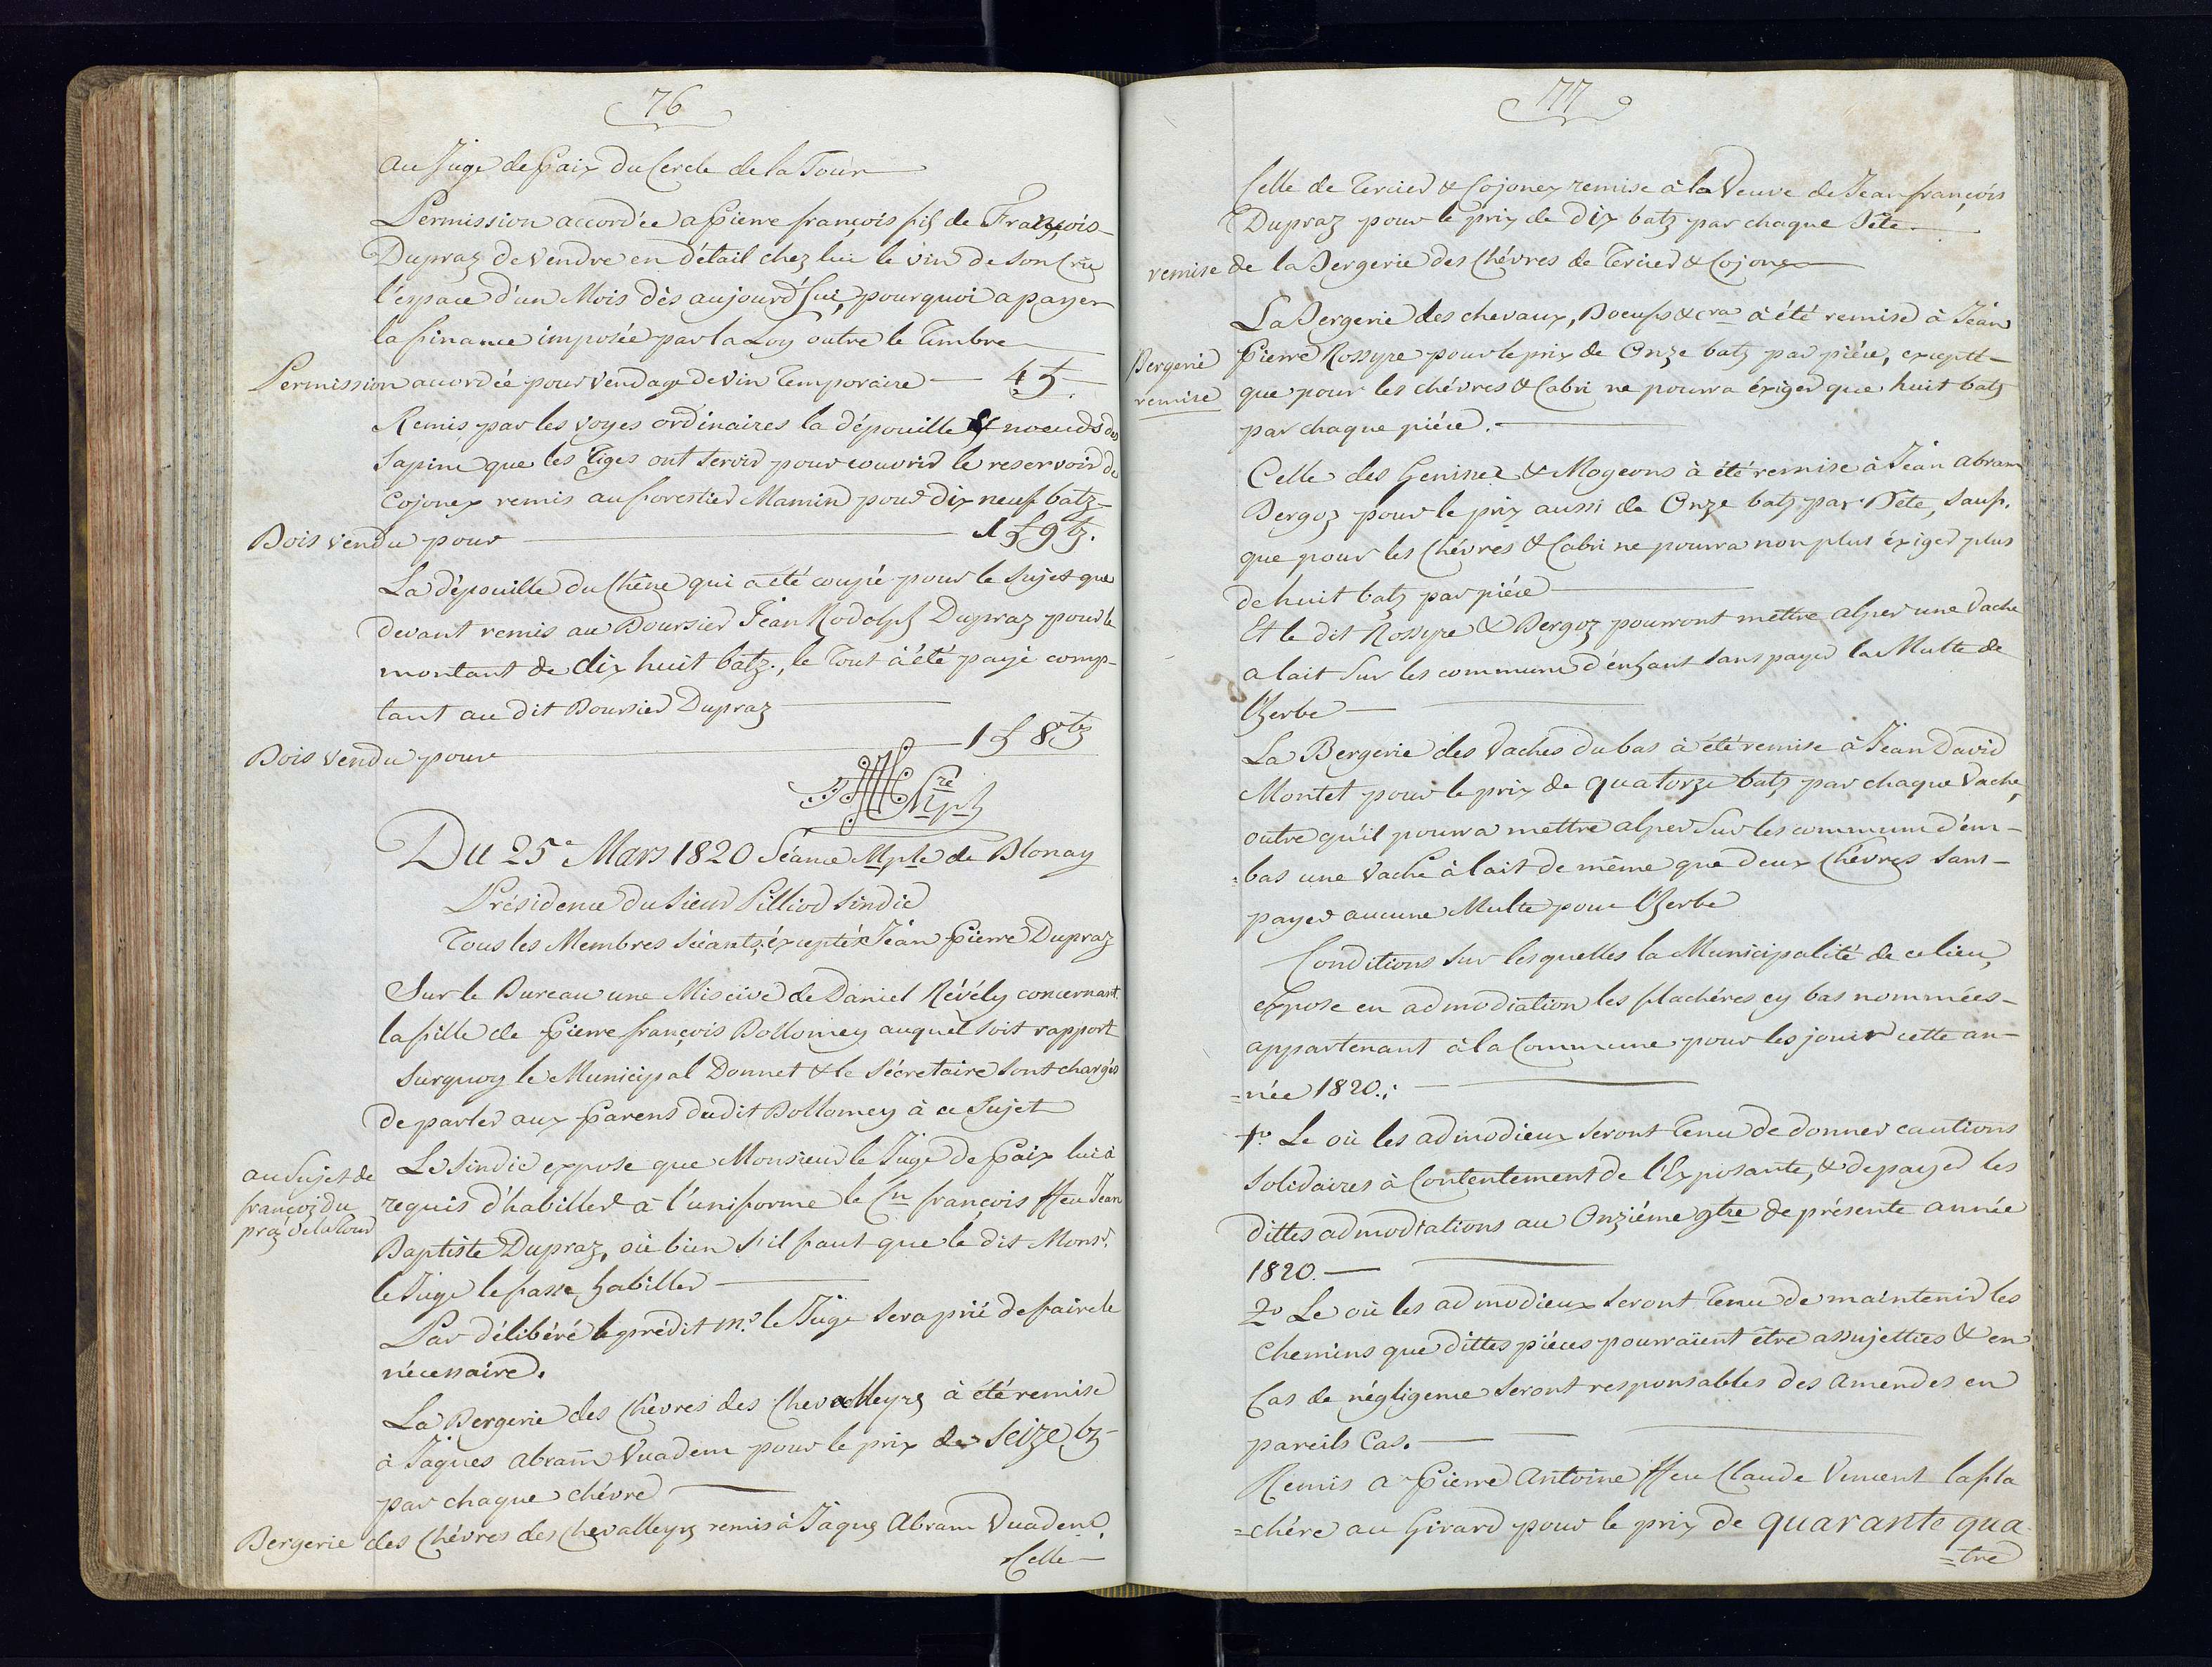 76
au Juge de Paix du Cercle de la Tour
Permission accordée a Pierre françois fils de François
Dupraz de Vendre en détail chez lui le vin de Son Crû
l'espace d'un Mois dès aujourd'hui, pourquoi a payer
la finance imposée par la Loy outre le Timbre
Permission accordée pour Vendage de Vin Temporaire — 4 f.
Remis par les voyes ordinaires la dépouille & noeuds des
Sapins que les Tiges ont Servir pour couvrir le reservoir de
Cojonex remis au forestier Mamin pour dix neuf batz
Bois Vendu pour — 1 f 9 bz.
La dépouille du Chêne qui a été coupé pour le Sujet que
devant remis au Boursier Jean Rodolph Dupraz pour le
montant de dix huit batz., le Tout à été payé comp-
tant au dit Boursier Dupraz
Bois Vendu pour — 1 f 8 btz
Du 25e Mars 1820 Séance Mple de Blonay
Présidence du Sieur Pilliod Sindic
Tous les Membres Séants; éxcepté Jéan Pierre Dupraz
Sur le Bureau une Miscive de Daniel Révély concernant
la fille de Pierre françois Bollomey auquel soit rapport
Surquoy le Municipal Donnet & le Sécretaire Sont chargés
de parler aux Parens dudit Bollomey à ce Sujet
au Sujet de
françoz Du
praz de la Tour
Le Sindic expose que Monsieur le Juge de Paix lui à
requis d'habiller à l'uniforme le Cn françois ffeu Jean
Baptiste Dupraz, où bien s'il faut que le dit Monsr.
le Juge le fasse habiller
Par délibéré le prédit mr. le Juge Sera prié de faire le
nécessaire.
La Bergerie des Chèvres des Chevalleyrs à été remise
à Jaques Abram Vuadem pour le prix de Seize bz
par chaque chévre
Bergerie des Chévres des Chevalleyrs remis à Jaques Abram Vuadem.
Celle
77
Celle de Tercier & Cojonex remise à la Veuve de Jean françois
Dupraz pour le prix de Dix batz par chaque Bête.
remise de la Bergerie des Chévres de Tercier & Cojonex
Bergerie
remise
La Bergerie des chevaux, Boeufs & cra à été remise à Jéan
Pierre Rossyre pour le prix de Onze batz par piéce, exceptt-
que pour les chévres & Cabri ne pourra éxiger que huit batz
par chaque piéce.
Celle des Genisses & Mogeons à été remise à Jéan abram
Bergoz pour le prix aussi de Onze batz par Bête, Sauf.
que pour les Chévres & Cabri ne pourra non plus éxiger plus
de huit batz par piéce
Et le dit Rossyre & Bergoz pourront mettre alper une Vache
a lait Sur les communs d'enhaut Sans payer la Multe de
l'herbe
La Bergerie des Vaches du bas à été remise à Jéan David
Montet pour le prix de quatorze batz par chaque Vache,
outre qu'il pourra mettre alper Sur les commun d'em-
=bas une Vache à lait de même que deux Chèvres Sans-
payer aucune Multe pour l'herbe
Conditions Sur lesquelles la Municipalité de ce lieu,
expose en admodiation les flachéres cy bas nommées-
appartenant à la Commune pour les jouir cette an-
=née 1820.:
1o. Le où les admodieux Seront Tenu de donner cautions
Solidaires à Contentement de l'Exposante, & de payer les
dittes admodiations au Onziéme 9bre de présente année
1820.
2o Le où les admodieux Seront Tenu de maintenir les
Chemins que dittes piéces pourraient être assujetties & en
Cas de négligence Seront responsables des Amendes en
pareils Cas.
Remis a Pierre Antoine ffeu Claude Vincent la fla
=chére au Girard pour le prix de quarante qua
=tre